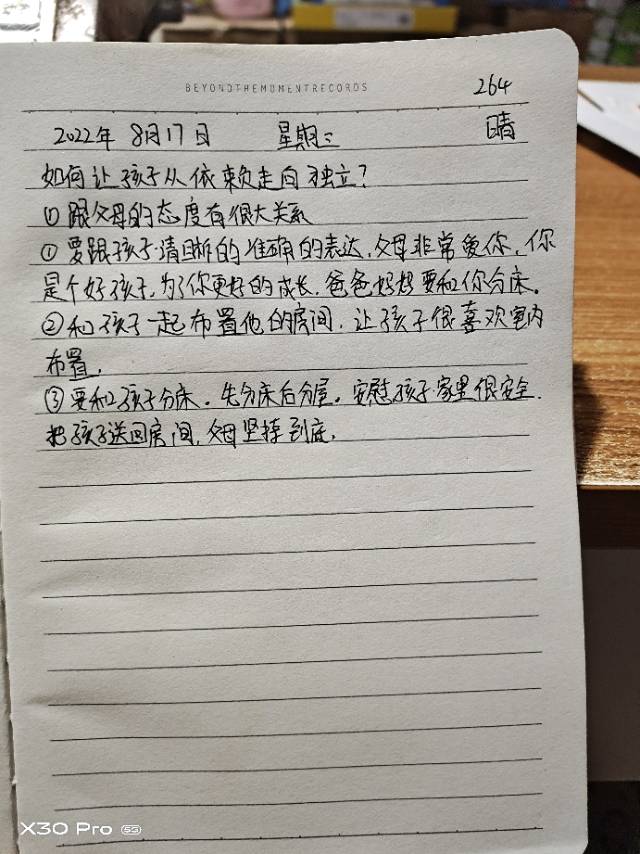 BEYONDTHEMOMENTRECORDS
264
2022年 8月17日 星期三 晴
如何让孩子从依赖走向独立?
⑴跟父母的态度有很大关系
①要跟孩子清晰的准确的表达,父母非常爱你,你
是个好孩子,为了你更好的成长,爸爸妈妈要和你分床。
②和孩子一起布置他的房间,让孩子很喜欢室内
布置,
③要和孩子分床,先分床后分屋,安慰孩子家里很安全.
把孩子送回房间,父母坚持到底,
X30 Pro 5G